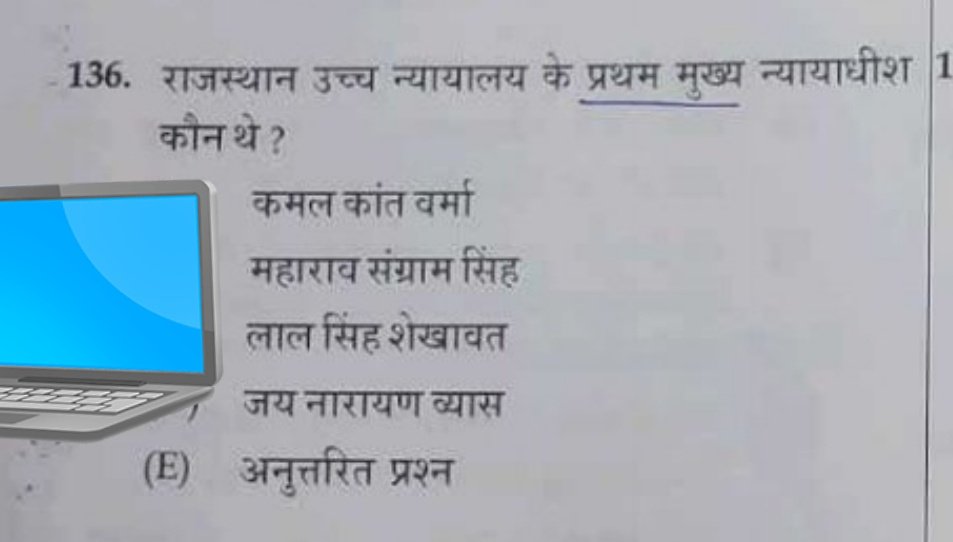 136. राजस्थान उच्च न्यायालय के प्रथम मुख्य न्यायाधीश 1
कौन थे ?
कमल कांत वर्मा
महाराव संग्राम सिंह
लाल सिंह शेखावत
जय नारायण व्यास
(E) अनुत्तरित प्रश्न